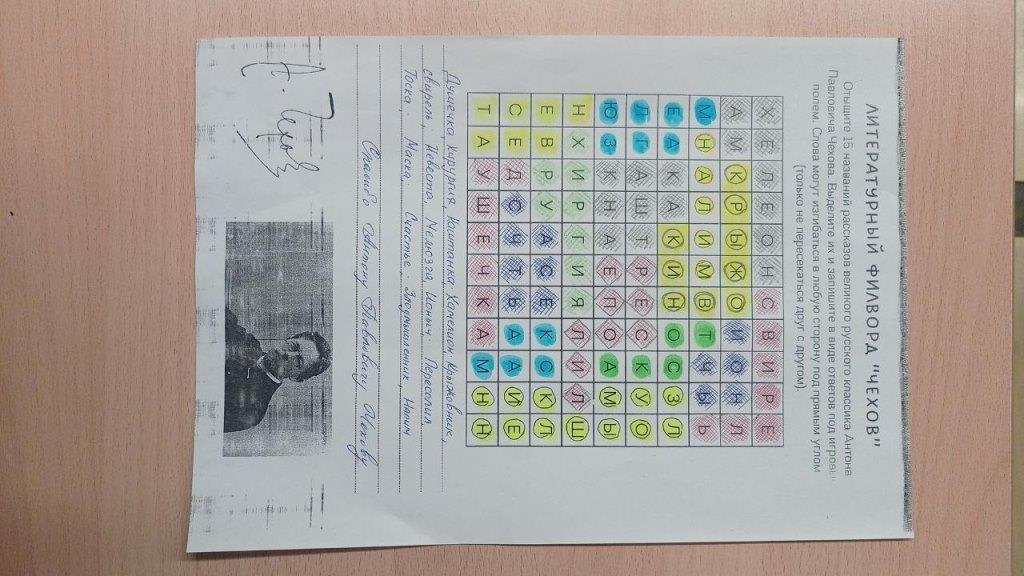 ЛИТЕРАТУРНЫЙ ФИЛВОРД "ЧЕХОВ"
Отыщите 15 названий рассказов великого русского классика Антона
Павловича Чехова. Выделите их и запишите в виде ответов под игровым
полем. Слова могут изгибаться в любую сторону под прямым углом
(только не пересекаться друг с другом).
Х Е Л Е О Н С В И Р Е
А М К Р Ы Ж О И О Н Л
М Н А Л И М В Т Ч Ы Ь
Е А К А К И Н О С З Л
Л Г А Ш Т Р Е С К У О
Ю З К Н А Е П О А М Ы
Н Х И Р Г И Я Л И Л Ш
Е В Р У А С Е К С К Л
С Е Д С Ч Т Ь А А И Е
Т А У Ш Е Ч К А М Н Н
Душечка, хирургия, Каштанка, Хамелеон, Крыжовник,
свирель, Невеста, Мелюзга, Ионыч, Пересолил
Тоска. Маска, Счастье, Злоумышленник, Налим
Спасибо Антону Павловичу Чехову
А. Чехов